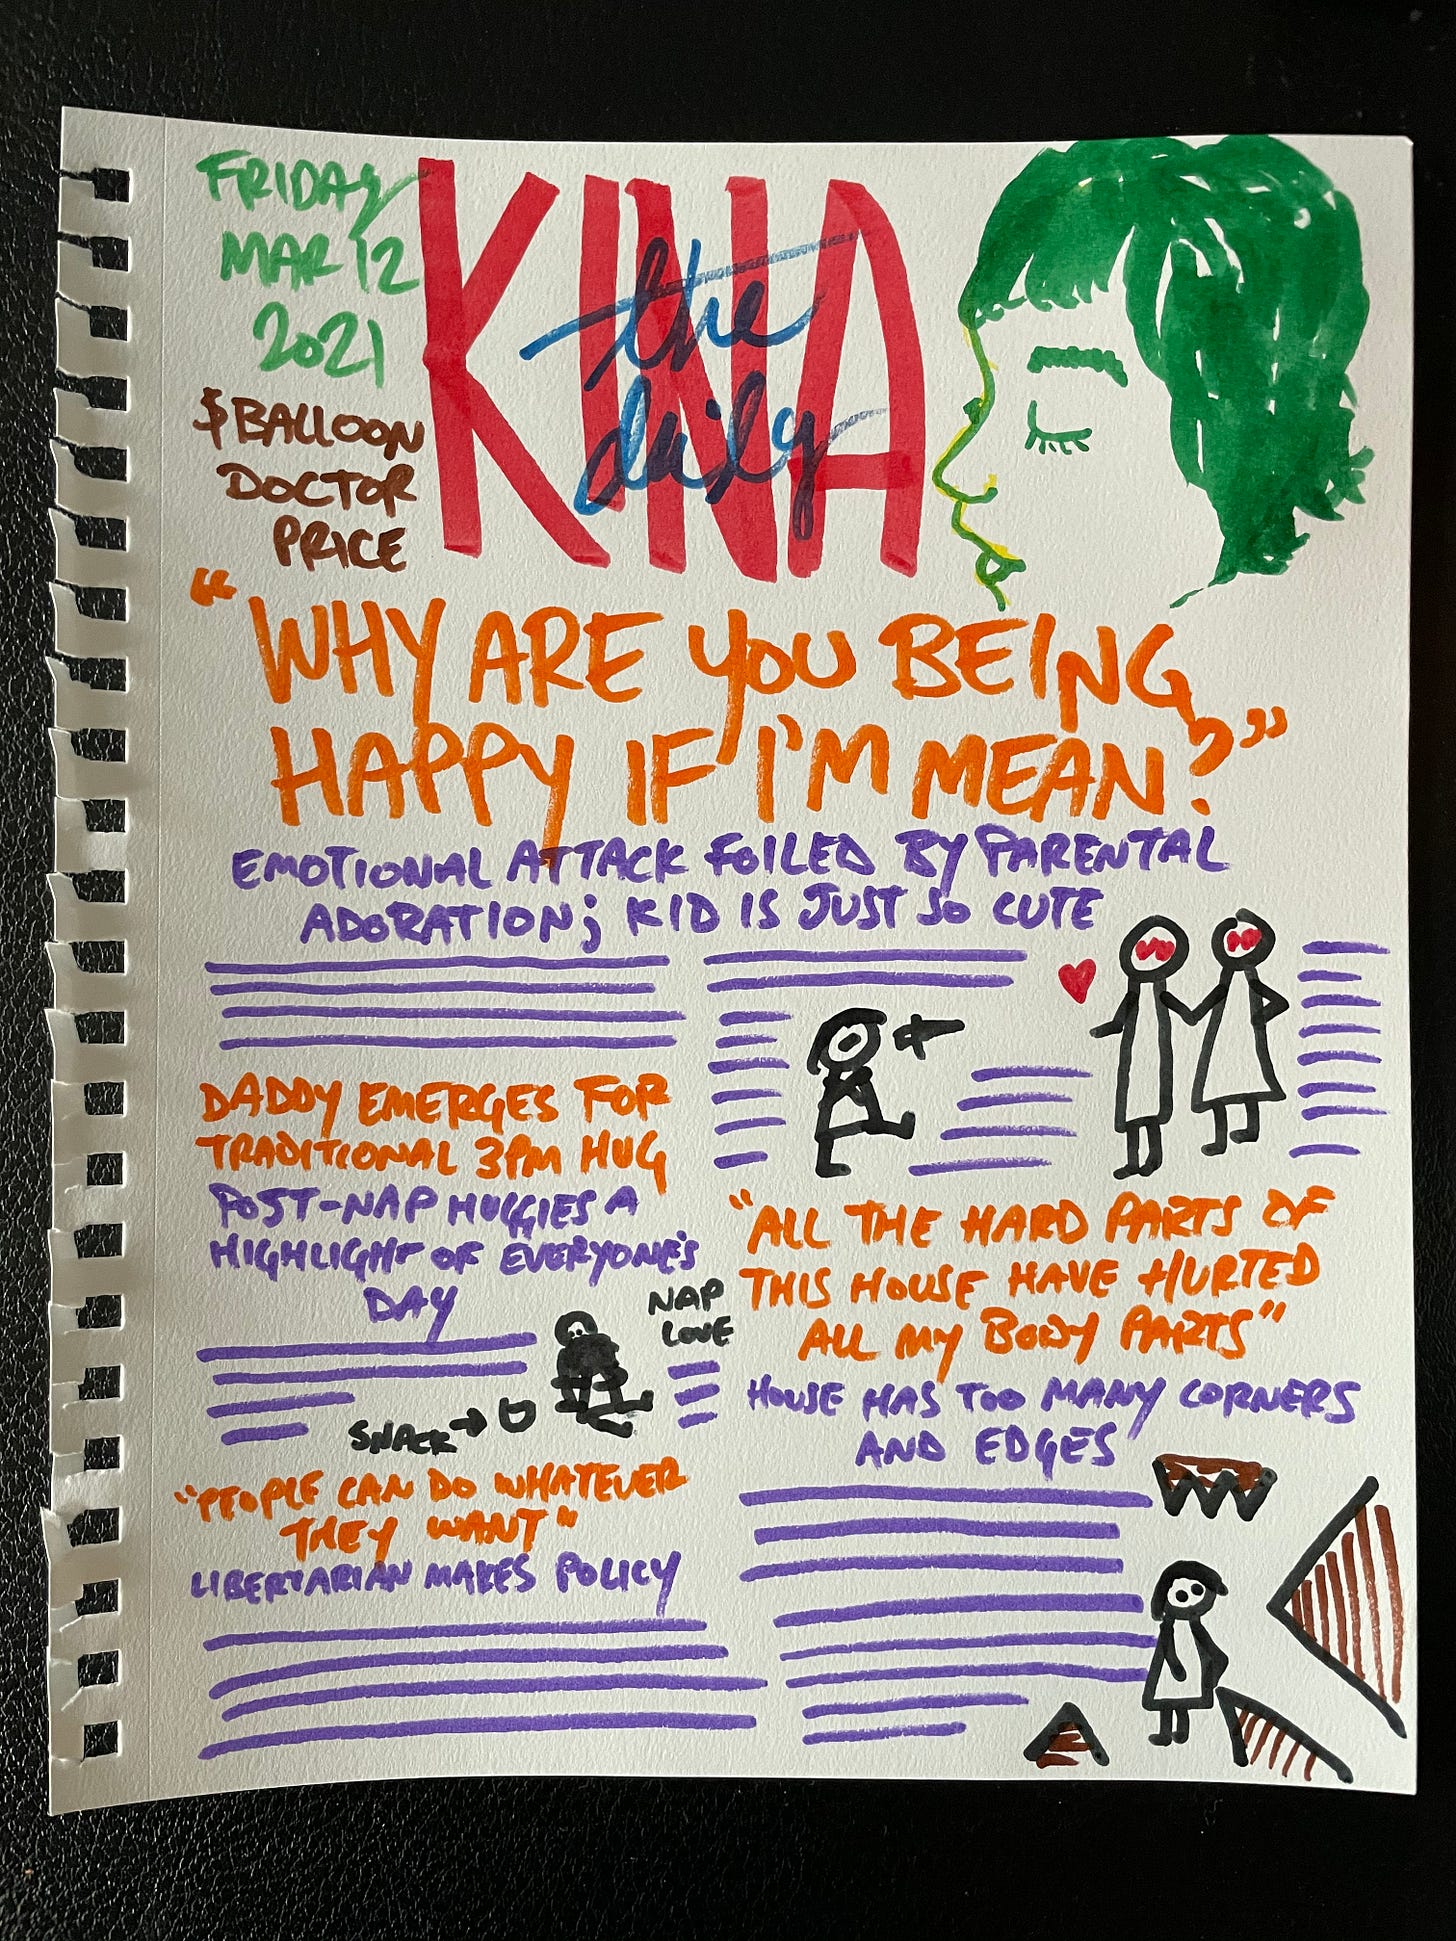 FRIDAY
MAR 12
2021
$BALLOON
DOCTOR
PRICE
KINA
the
daily
"WHY ARE YOU BEING
HAPPY IF I'M MEAN?"
EMOTIONAL ATTACK FOILED BY PARENTAL
ADORATION; KID IS JUST SO CUTE
DADDY EMERGES FOR
TRADITIONAL 3PM HUG
POST-NAP HUGGIES A
HIGHLIGHT OF EVERYONE'S
DAY
NAP
LOVE
SNACK→
"PEOPLE CAN DO WHATEVER
THEY WANT"
LIBERTARIAN MAKES POLICY
"ALL THE HARD PARTS OF
THIS HOUSE HAVE HURTED
ALL MY BODY PARTS"
HOUSE HAS TOO MANY CORNERS
AND EDGES